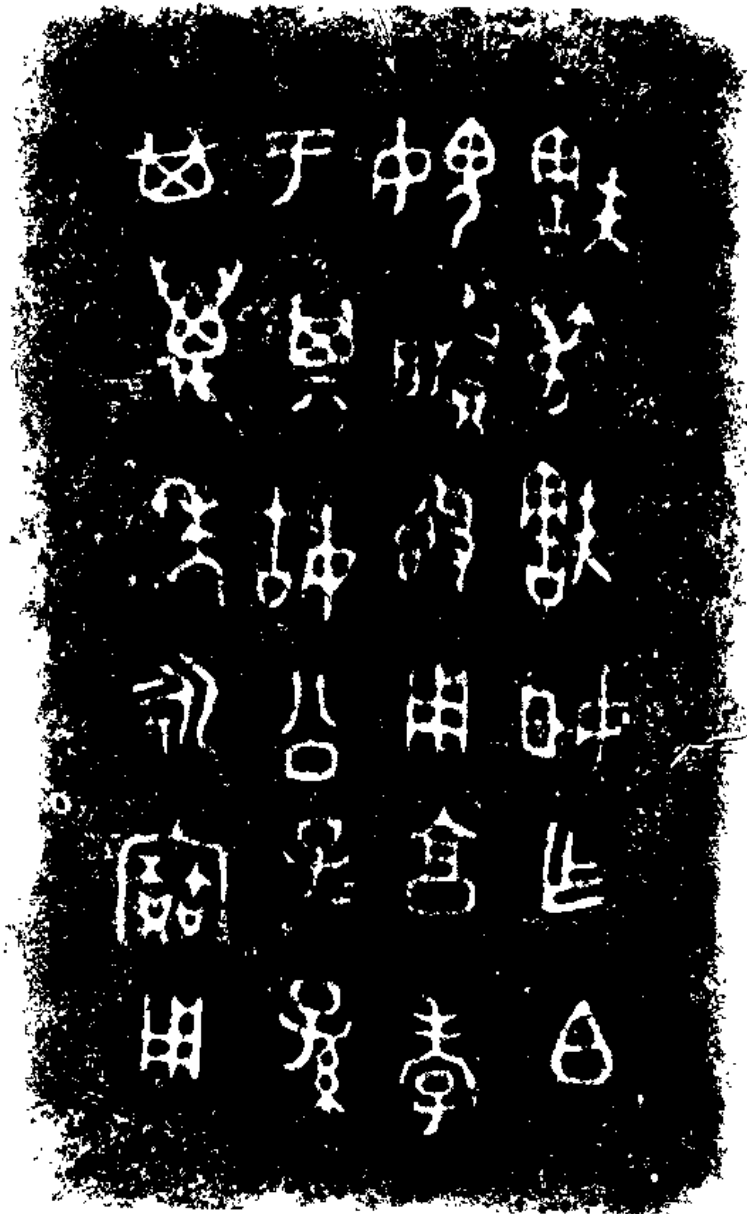 㝬叔㝬姬乍白
媿媵𣪘用亯孝
于其姑公子孫
其萬年永寶用